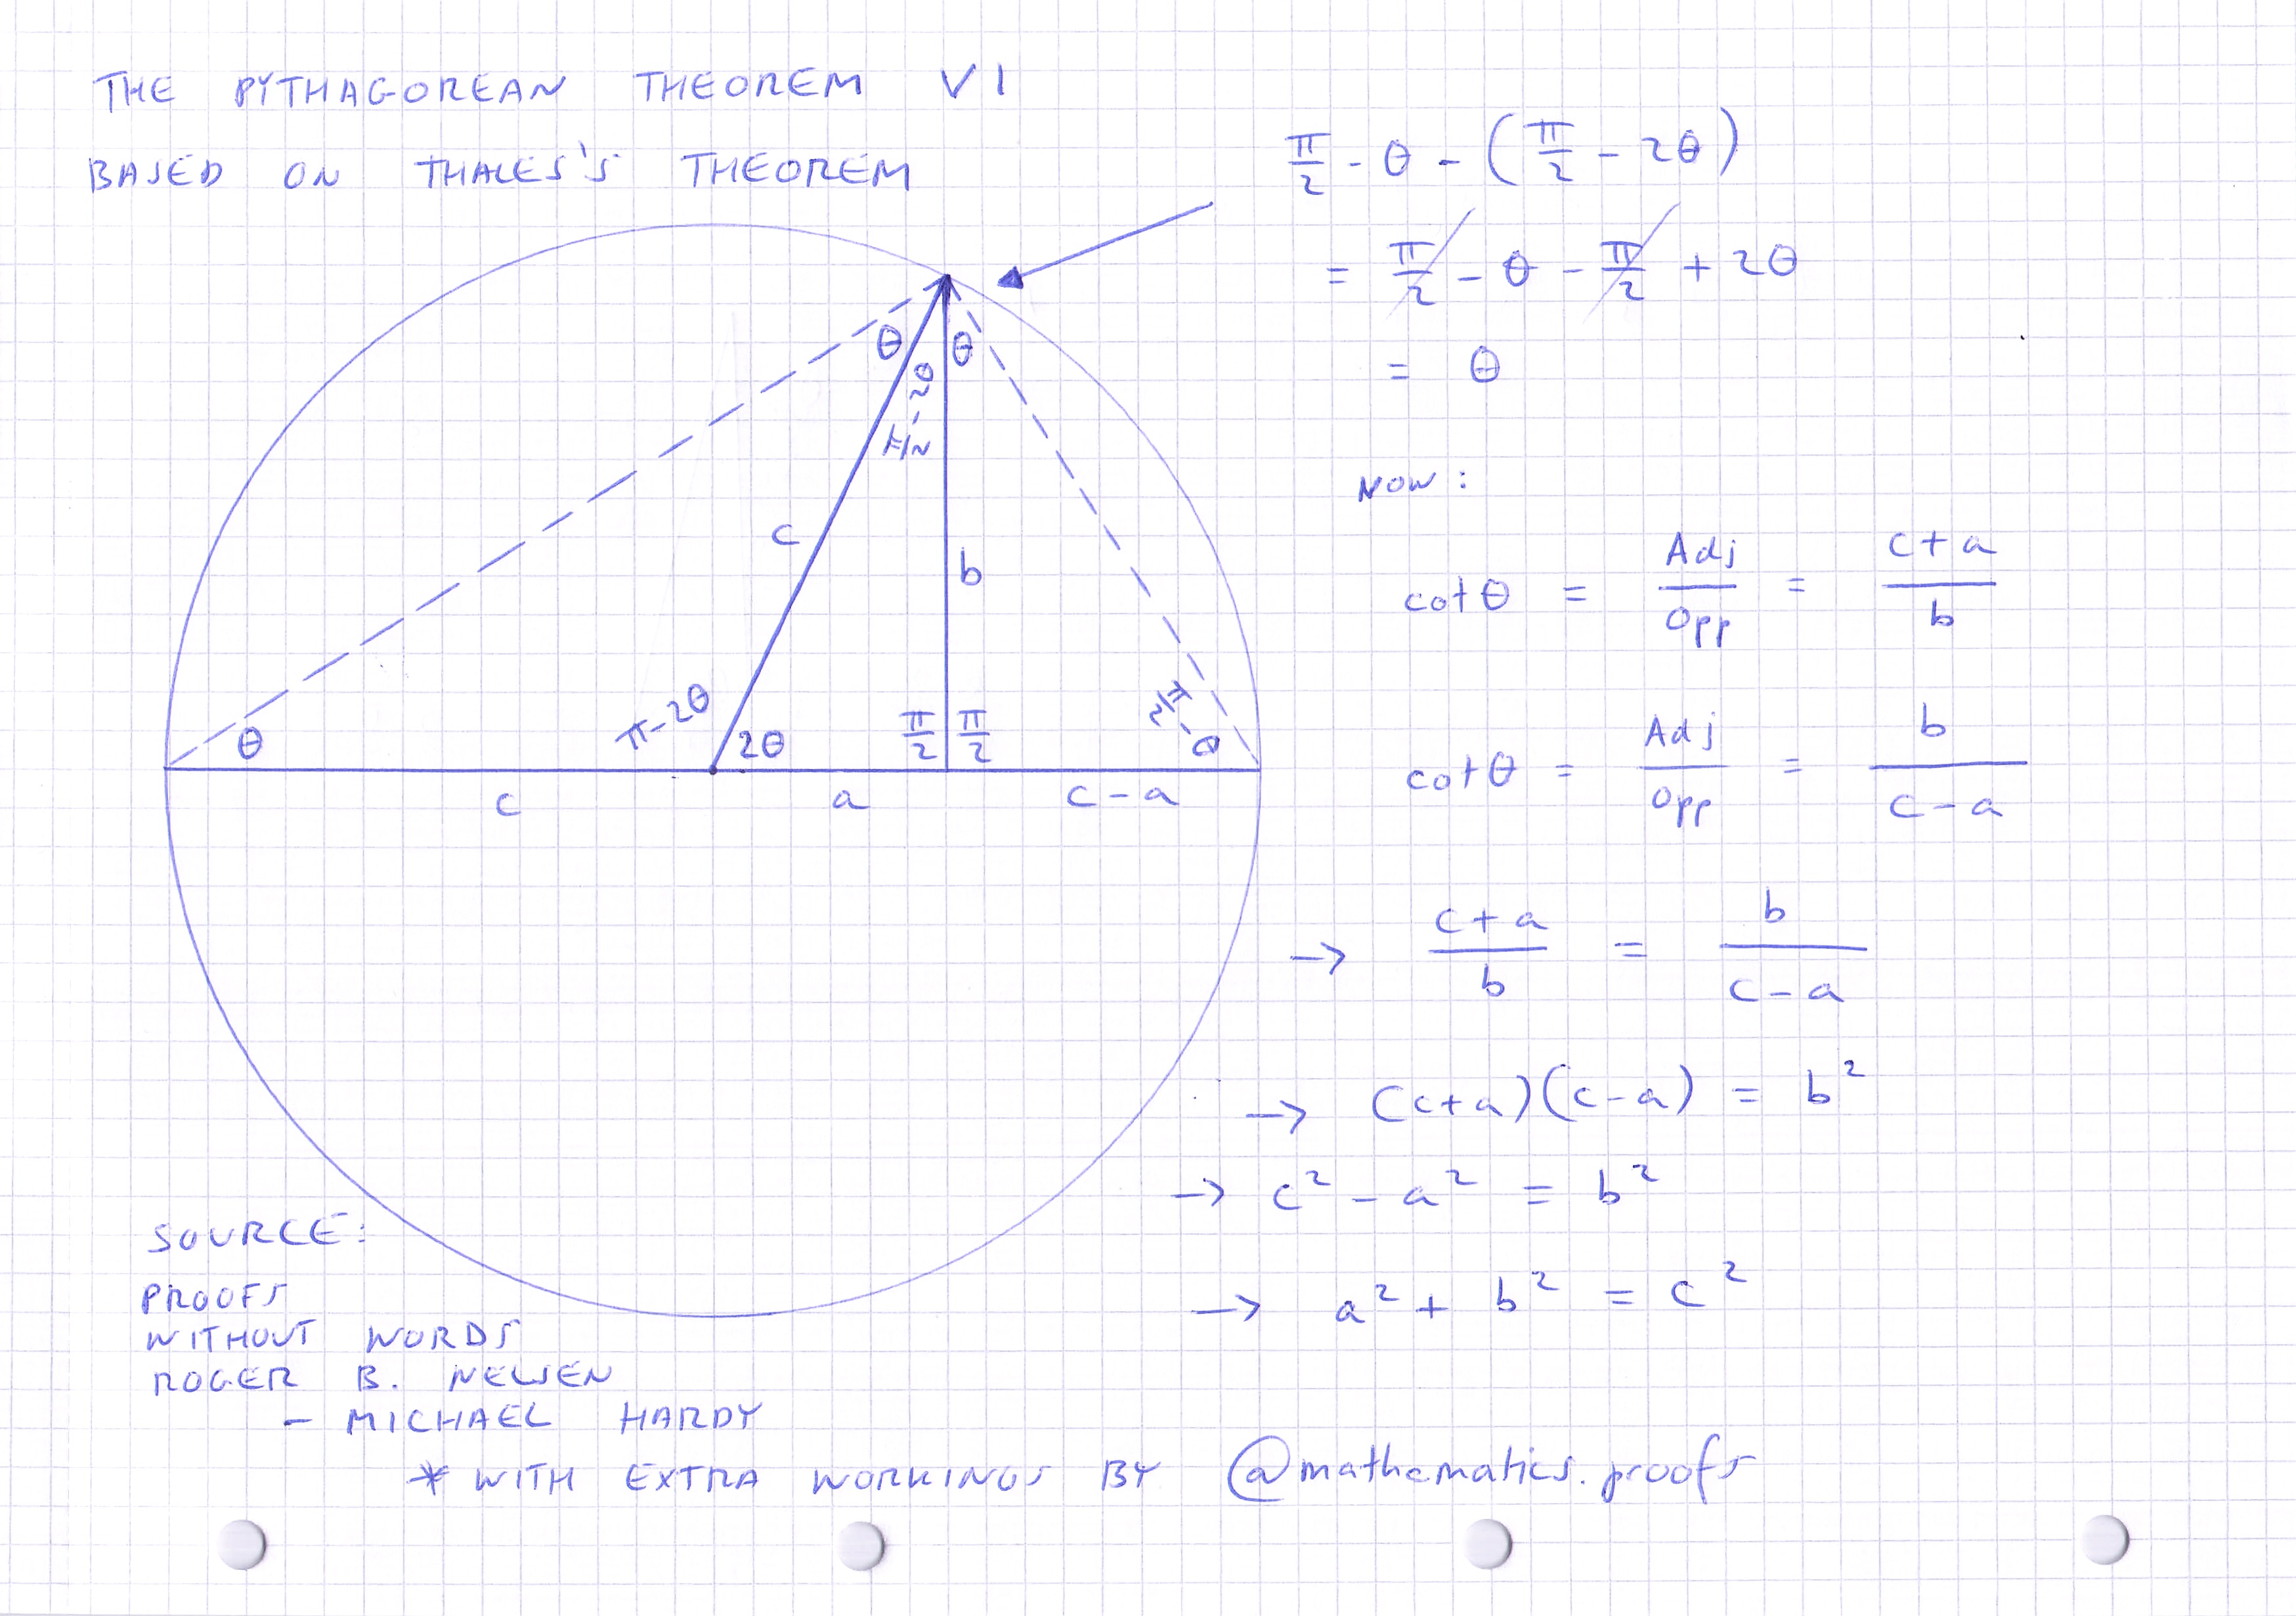 THE PYTHAGOREAN THEOREM VI
BASED ON THALES'S THEOREM
π/2 - θ - (π/2 - 2θ)
= π/2 - θ - π/2 + 2θ
= θ
θ
θ
π/2 - 2θ
c
b
π-2θ
2θ
π/2
π/2
π/2 - θ
θ
c
a
c-a
NOW:
cot θ = Adj/Opp = c+a/b
cot θ = Adj/Opp = b/c-a
→ c+a/b = b/c-a
→ (c+a)(c-a) = b²
→ c² - a² = b²
→ a² + b² = c²
SOURCE:
PROOFS
WITHOUT WORDS
ROGER B. NELSEN
- MICHAEL HARDY
* WITH EXTRA WORKINGS BY @mathematics.proofs